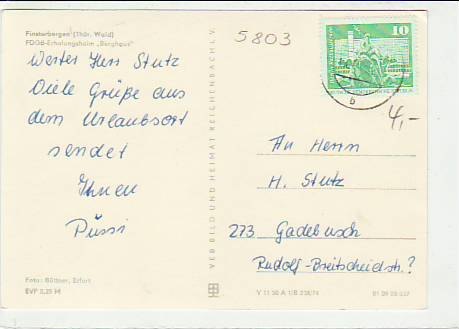 Finsterbergen (Thür. Wald)
FDGB-Erholungsheim „Berghaus"
5803
10
Werter Herr Stutz
Viele Grüße aus
dem Urlaubsort
sendet
Ihnen
Püssi
VEB BILD UND HEIMAT REICHENBACH I. V.
4,-
An Herrn
H. Stutz
273 Gadebusch
Rudolf-Breitscheidstr.?
Foto: Büttner, Erfurt
EVP 0,25 M
V 11 50 A 1/B